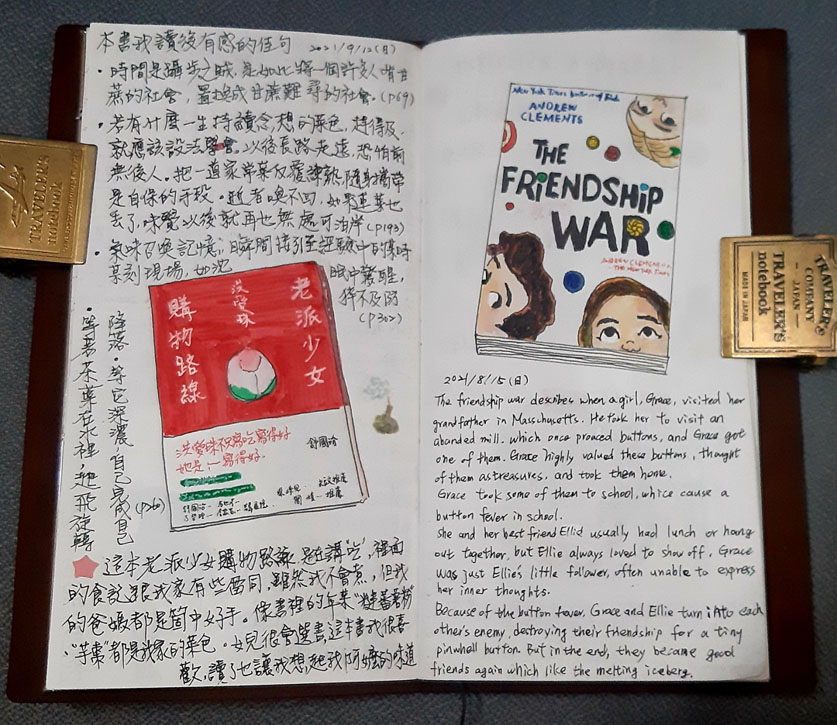 本書我讀後有感的佳句 2021/9/12(日)
・時間是躡步之賊,是如此將一個許多人嗜甘
蔗的社會,置換成甘蔗難尋的社會。(p69)
・若有什麼一生持續念,想的菜色,趁得及,
就應該設法學會。以後長路走遠,恐怕前
無後人。把一道家常菜反覆練熟,隨身攜帶
是自保的手段。逝者喚不回,如果連菜也
丟了,味覺以後就再也無處可泊岸(p193)
・氣味召喚記憶,瞬間接引至經驗中的
某刻現場,如沈
眠中驚醒,
猝不及防
(p302)
・等著茶葉在水裡,迴飛旋轉
降落。等它深濃,自己變成自己
(p26)
老派少女
洪愛珠
購物路線
洪愛珠不只寫吃寫得好
她是一寫得好。
舒國治
這本老派少女購物路線是在講"吃",裡面
的食記跟我家有些雷同,雖然我不會煮,但我
的爸媽都是箇中好手。像書裡的年菜
"芋棗"都是我家的菜色。女兒很會選書,這本書我很喜
歡,讀了也讓我想起我阿嬤的味道
New York Times
ANDREW
CLEMENTS
THE
FRiENDSHiP
WAR
ANDREW CLEMENTS
2021/8/15(日)
The friendship war describes when a girl, Grace, visited her
grandfather in Masschusotts. He took her to visit an
abonded mill. which once proaced buttons, and Grace got
one of them. Grace highly valued these buttons, thought
of them as treasures, and took them home.
Grace took some of them to school, whice cause a
button fever in school.
She and her best friend Ellie usually had lunch or hang
out together, but Ellie always loved to show off, Grace
was just Ellie's little follower, often unable to express
her inner thoughts.
Because of the button fever, Grace and Ellie turn into each
other's enemy, destroying their friendship for a tiny
pinwhell button. But in the end, they became good
friends again which like the melting iceberg.
TRAVELER'S
notebook
TRAVELER'S
COMPANY
JAPAN
TRAVELER'S
notebook
MADE IN JAPAN